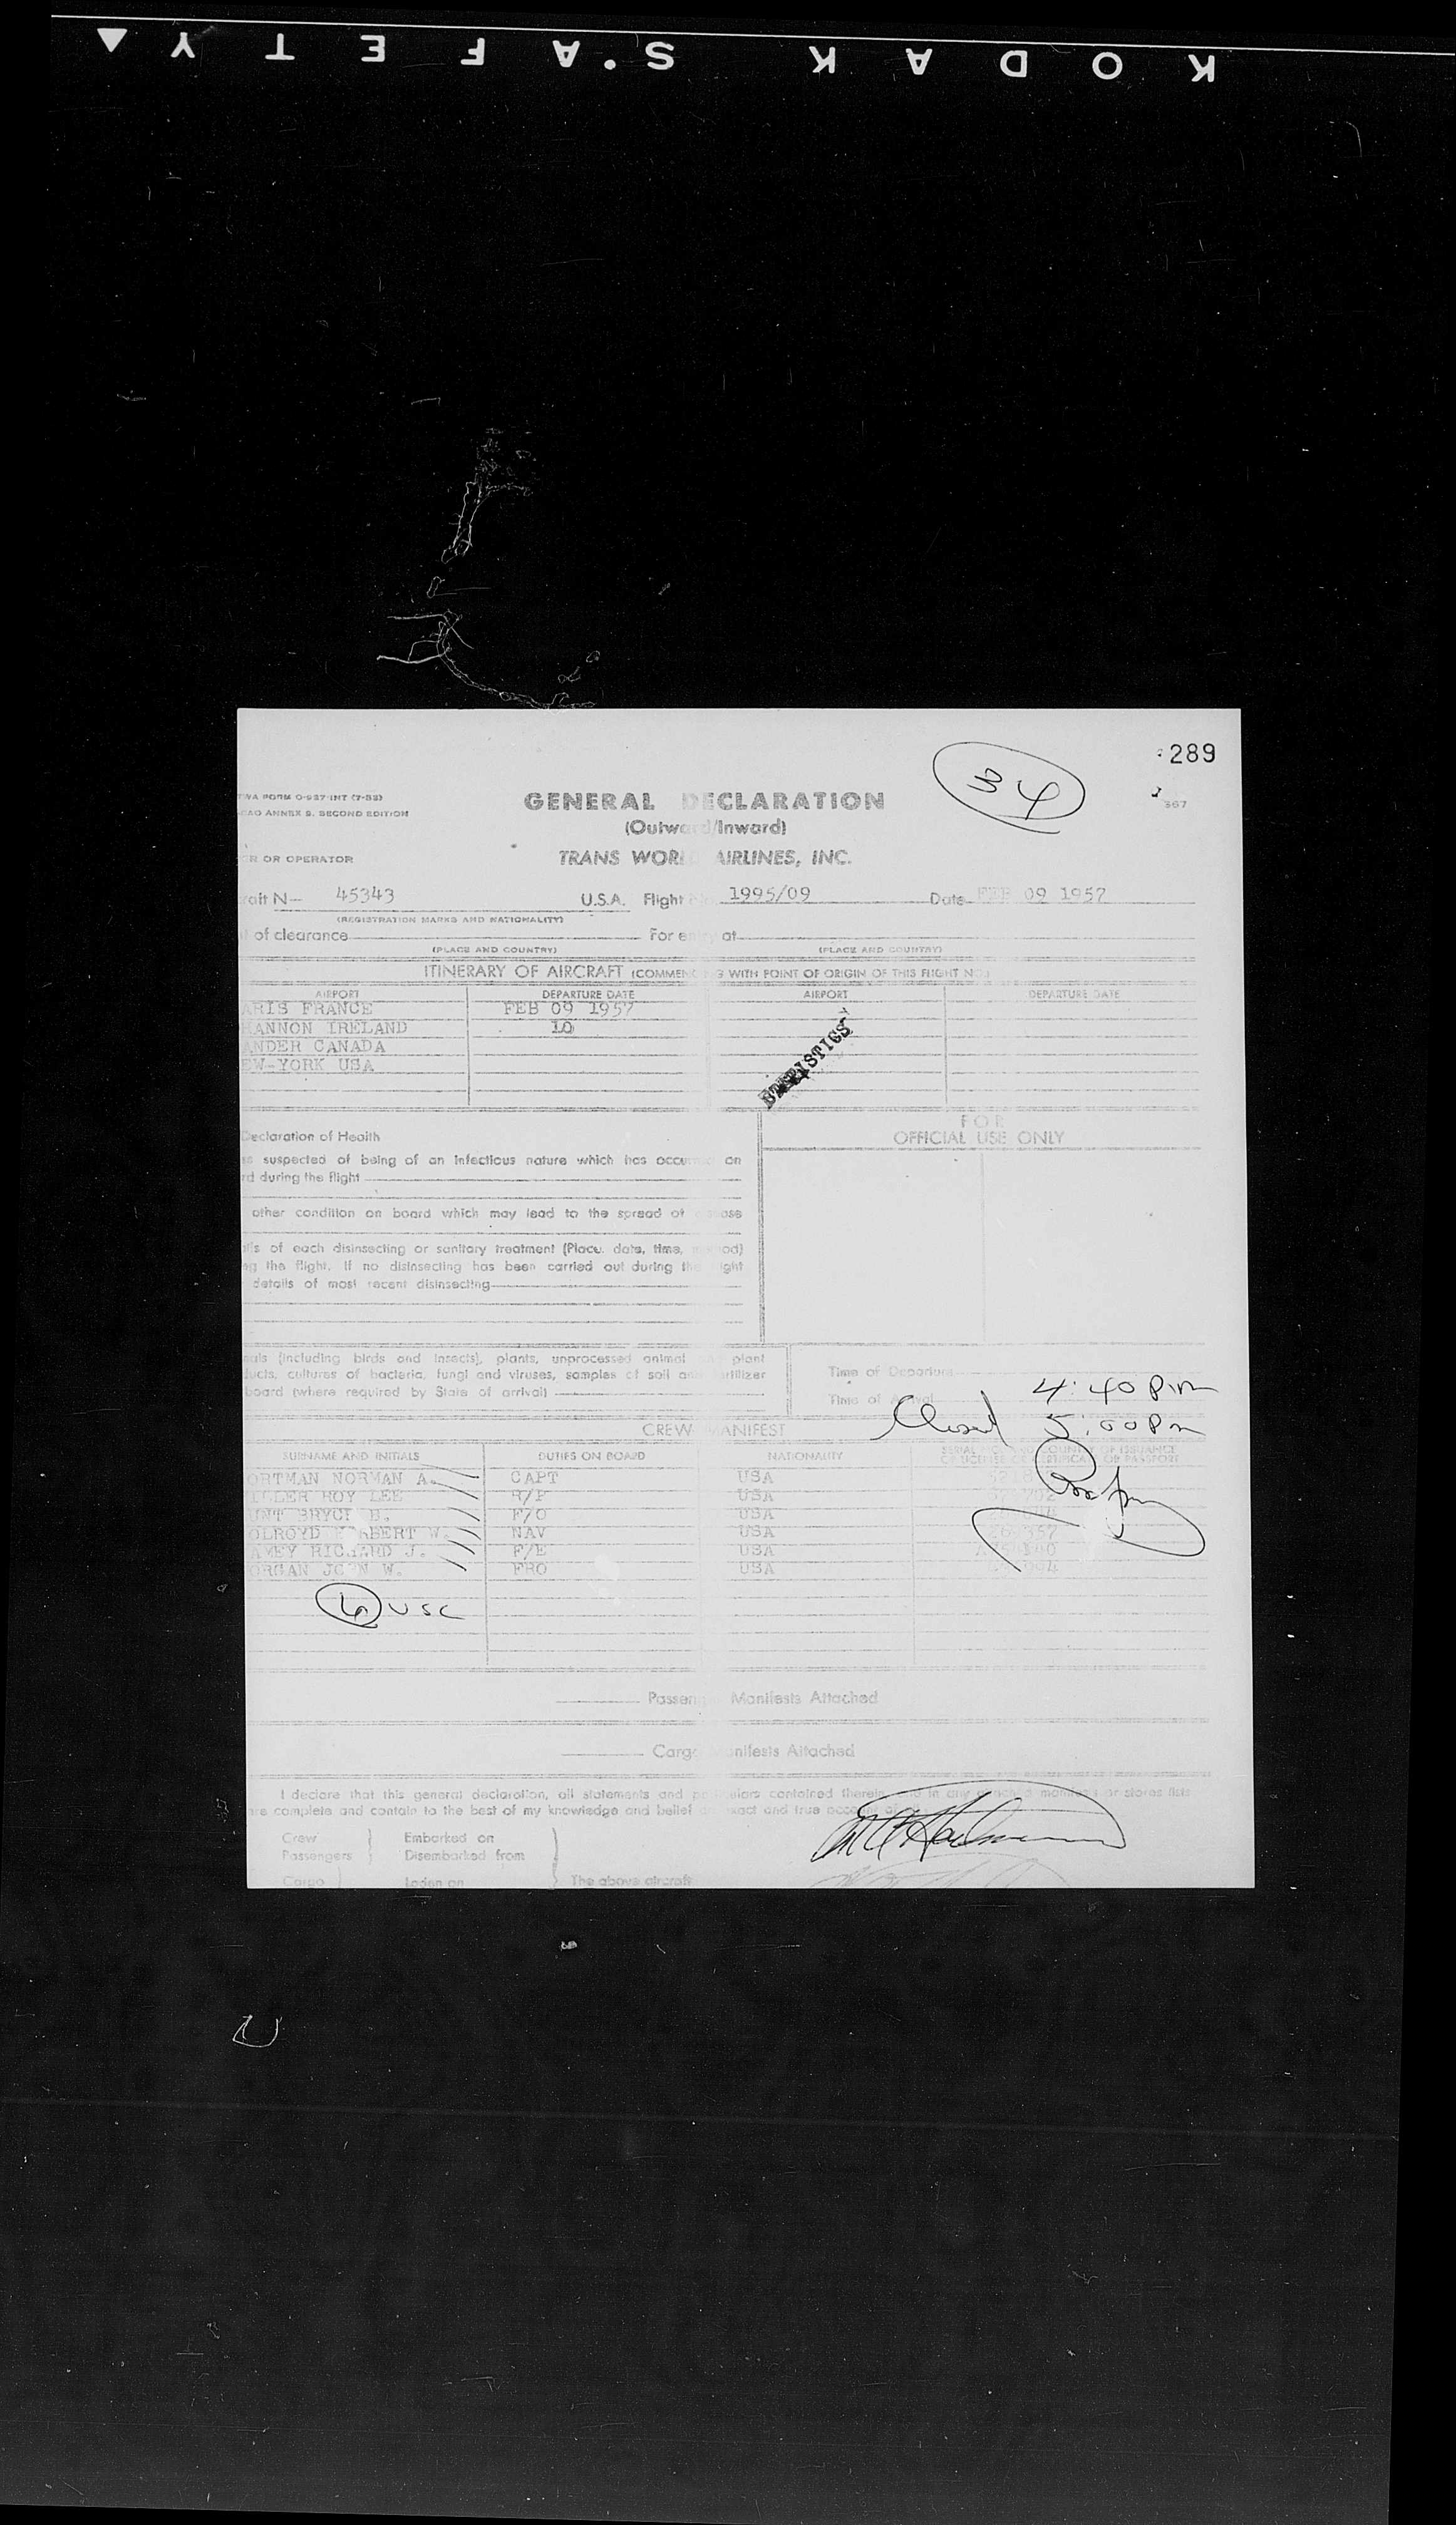 KODAK SAFETY
289
34
367
TWA FORM O-927-INT (7-53)
ICAO ANNEX 9, SECOND EDITION
GENERAL DECLARATION
(Outward/Inward)
OR OPERATOR
TRANS WORLD AIRLINES, INC.
N— 45343 U.S.A. Flight 1995/09 Date FEB 09 1957
(REGISTRATION MARKS AND NATIONALITY)
of clearance For entry at
(PLACE AND COUNTRY) (PLACE AND COUNTRY)
ITINERARY OF AIRCRAFT (COMMENCING WITH POINT OF ORIGIN OF THIS FLIGHT NO.)
AIRPORT DEPARTURE DATE AIRPORT DEPARTURE DATE
ARIS FRANCE FEB 09 1957
HANNON IRELAND 10
ANDER CANADA
EW-YORK USA
STATISTICS
FOR
OFFICIAL USE ONLY
Declaration of Health
suspected of being of an infectious nature which has occurred on
rd during the flight
other condition on board which may lead to the spread of disease
ils of each disinsecting or sanitary treatment (Place, date, time, method)
ng the flight. If no disinsecting has been carried out during the flight
details of most recent disinsecting
als (including birds and insects), plants, unprocessed animal plant
ducts, cultures of bacteria, fungi and viruses, samples of soil fertilizer
board (where required by State of arrival)
Time of Departure
Time of Arrival 4:40 Pm
Closed 5:00 Pm
CREW MANIFEST
SURNAME AND INITIALS DUTIES ON BOARD NATIONALITY SERIAL NO. AND COUNTRY OF ISSUANCE
OF LICENSE OR CERTIFICATE OR PASSPORT
ORTMAN NORMAN A. CAPT USA
ROY LEE USA
UNT BRYCE B. F/O USA
OLROYD W. NAV USA
AMEY RICHARD J. F/E USA
ORGAN JOHN W. FRO USA
6 USC
Passenger Manifests Attached
Cargo Manifests Attached
I declare that this general declaration, all statements and particulars contained therein and in any manifests or stores lists
are complete and contain to the best of my knowledge and belief exact and true
Crew Embarked on
Passengers Disembarked from
Cargo Laden on The above aircraft